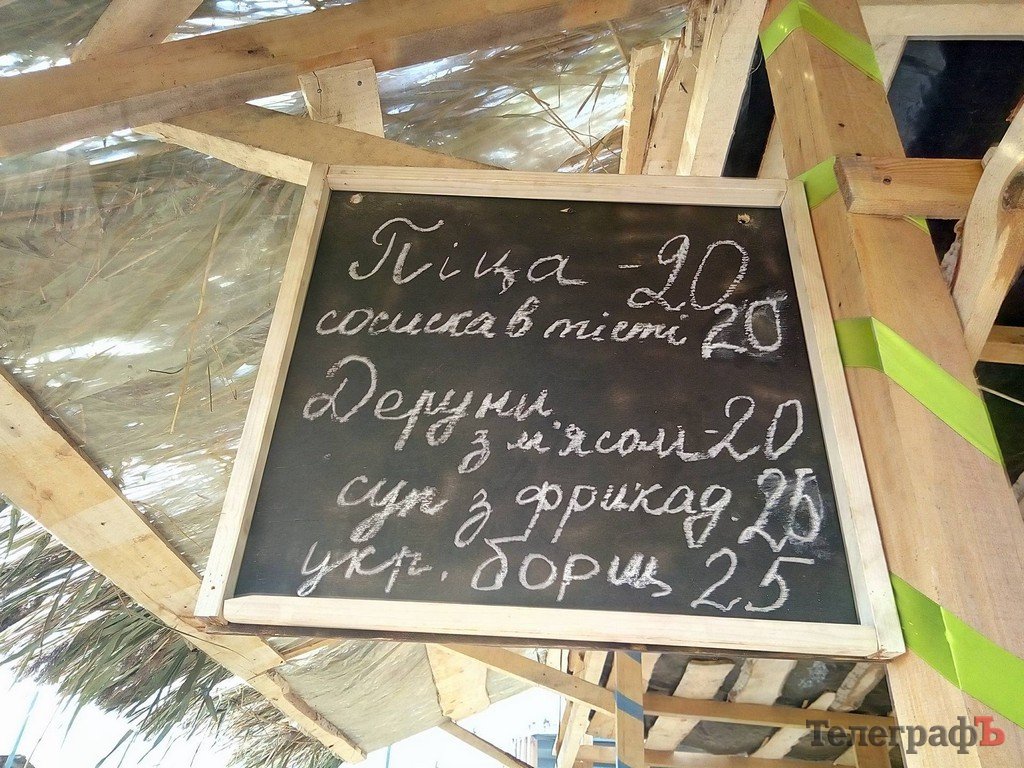 Піца - 20
сосиска в тісті 20
Деруни
з м'ясом - 20
суп з фрикад. 25
укр. борщ 25
ТелеграфЪ